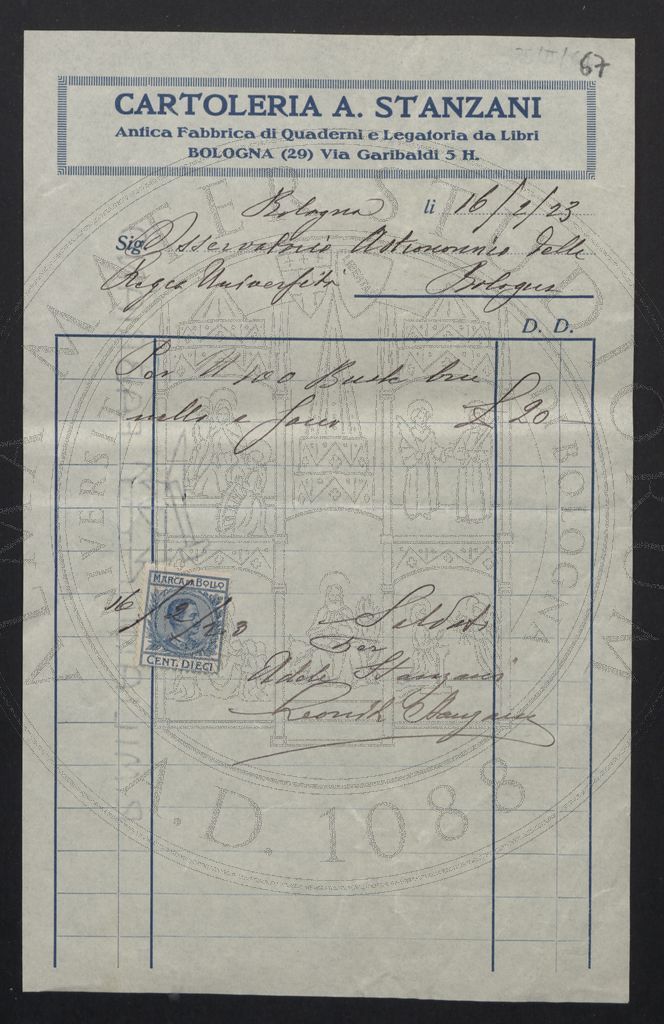 67
CARTOLERIA A. STANZANI
Antica Fabbrica di Quaderni e Legatoria da Libri
BOLOGNA (29) Via Garibaldi 5 H.
Bologna li 16/2/23
Sig. Osservatorio Astronomico della
Regia Università Bologna
D. D.
Per N 100 Buste
a sacco £ 20
MARCA DA BOLLO
16/2/23
CENT. DIECI
Saldato
Per
Adele Stanzani
Stanzani
ALMA MATER STUDIORUM
UNIVERSITÀ BOLOGNA
A.D. 1088